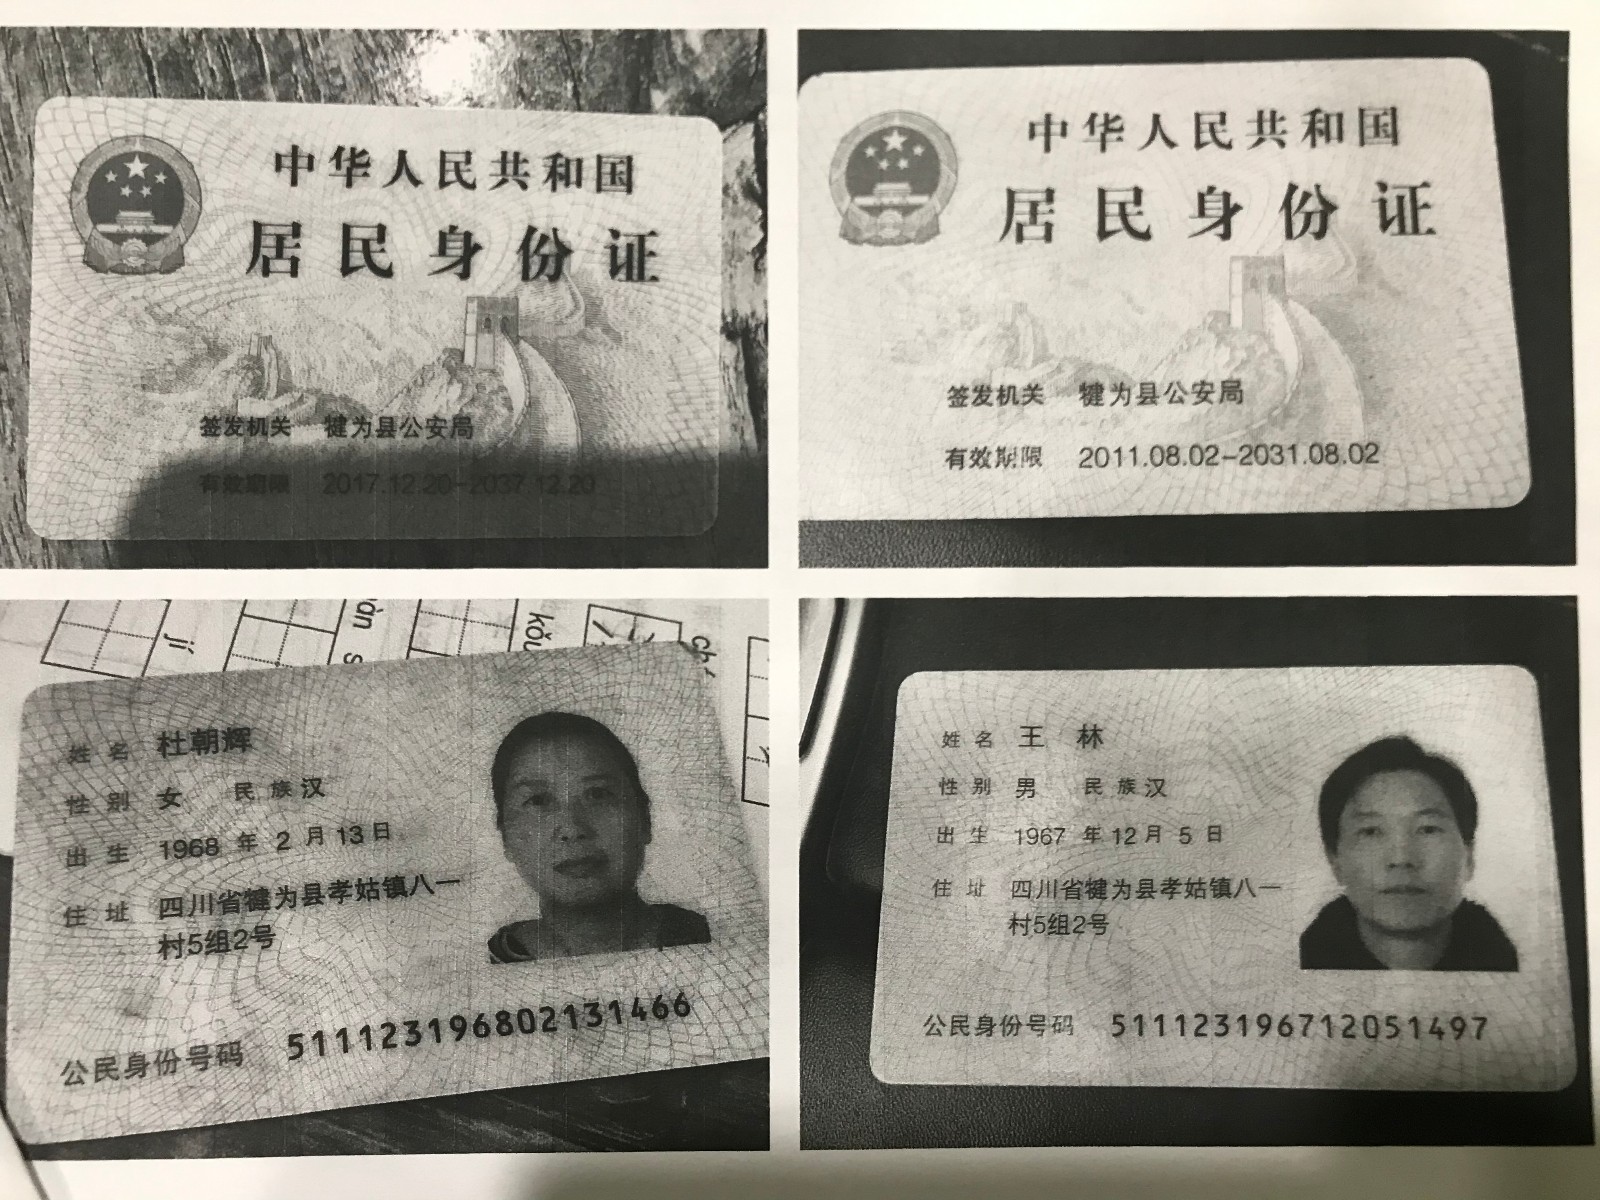 中华人民共和国
居民身份证
签发机关 犍为县公安局
有效期限 2017.12.20-2037.12.20
中华人民共和国
居民身份证
签发机关 犍为县公安局
有效期限 2011.08.02-2031.08.02
jí
kǒu
姓名 杜朝辉
性别 女 民族 汉
出生 1968 年 2 月 13 日
住址 四川省犍为县孝姑镇八一
村5组2号
公民身份号码 511123196802131466
姓名 王 林
性别 男 民族 汉
出生 1967 年 12 月 5 日
住址 四川省犍为县孝姑镇八一
村5组2号
公民身份号码 511123196712051497